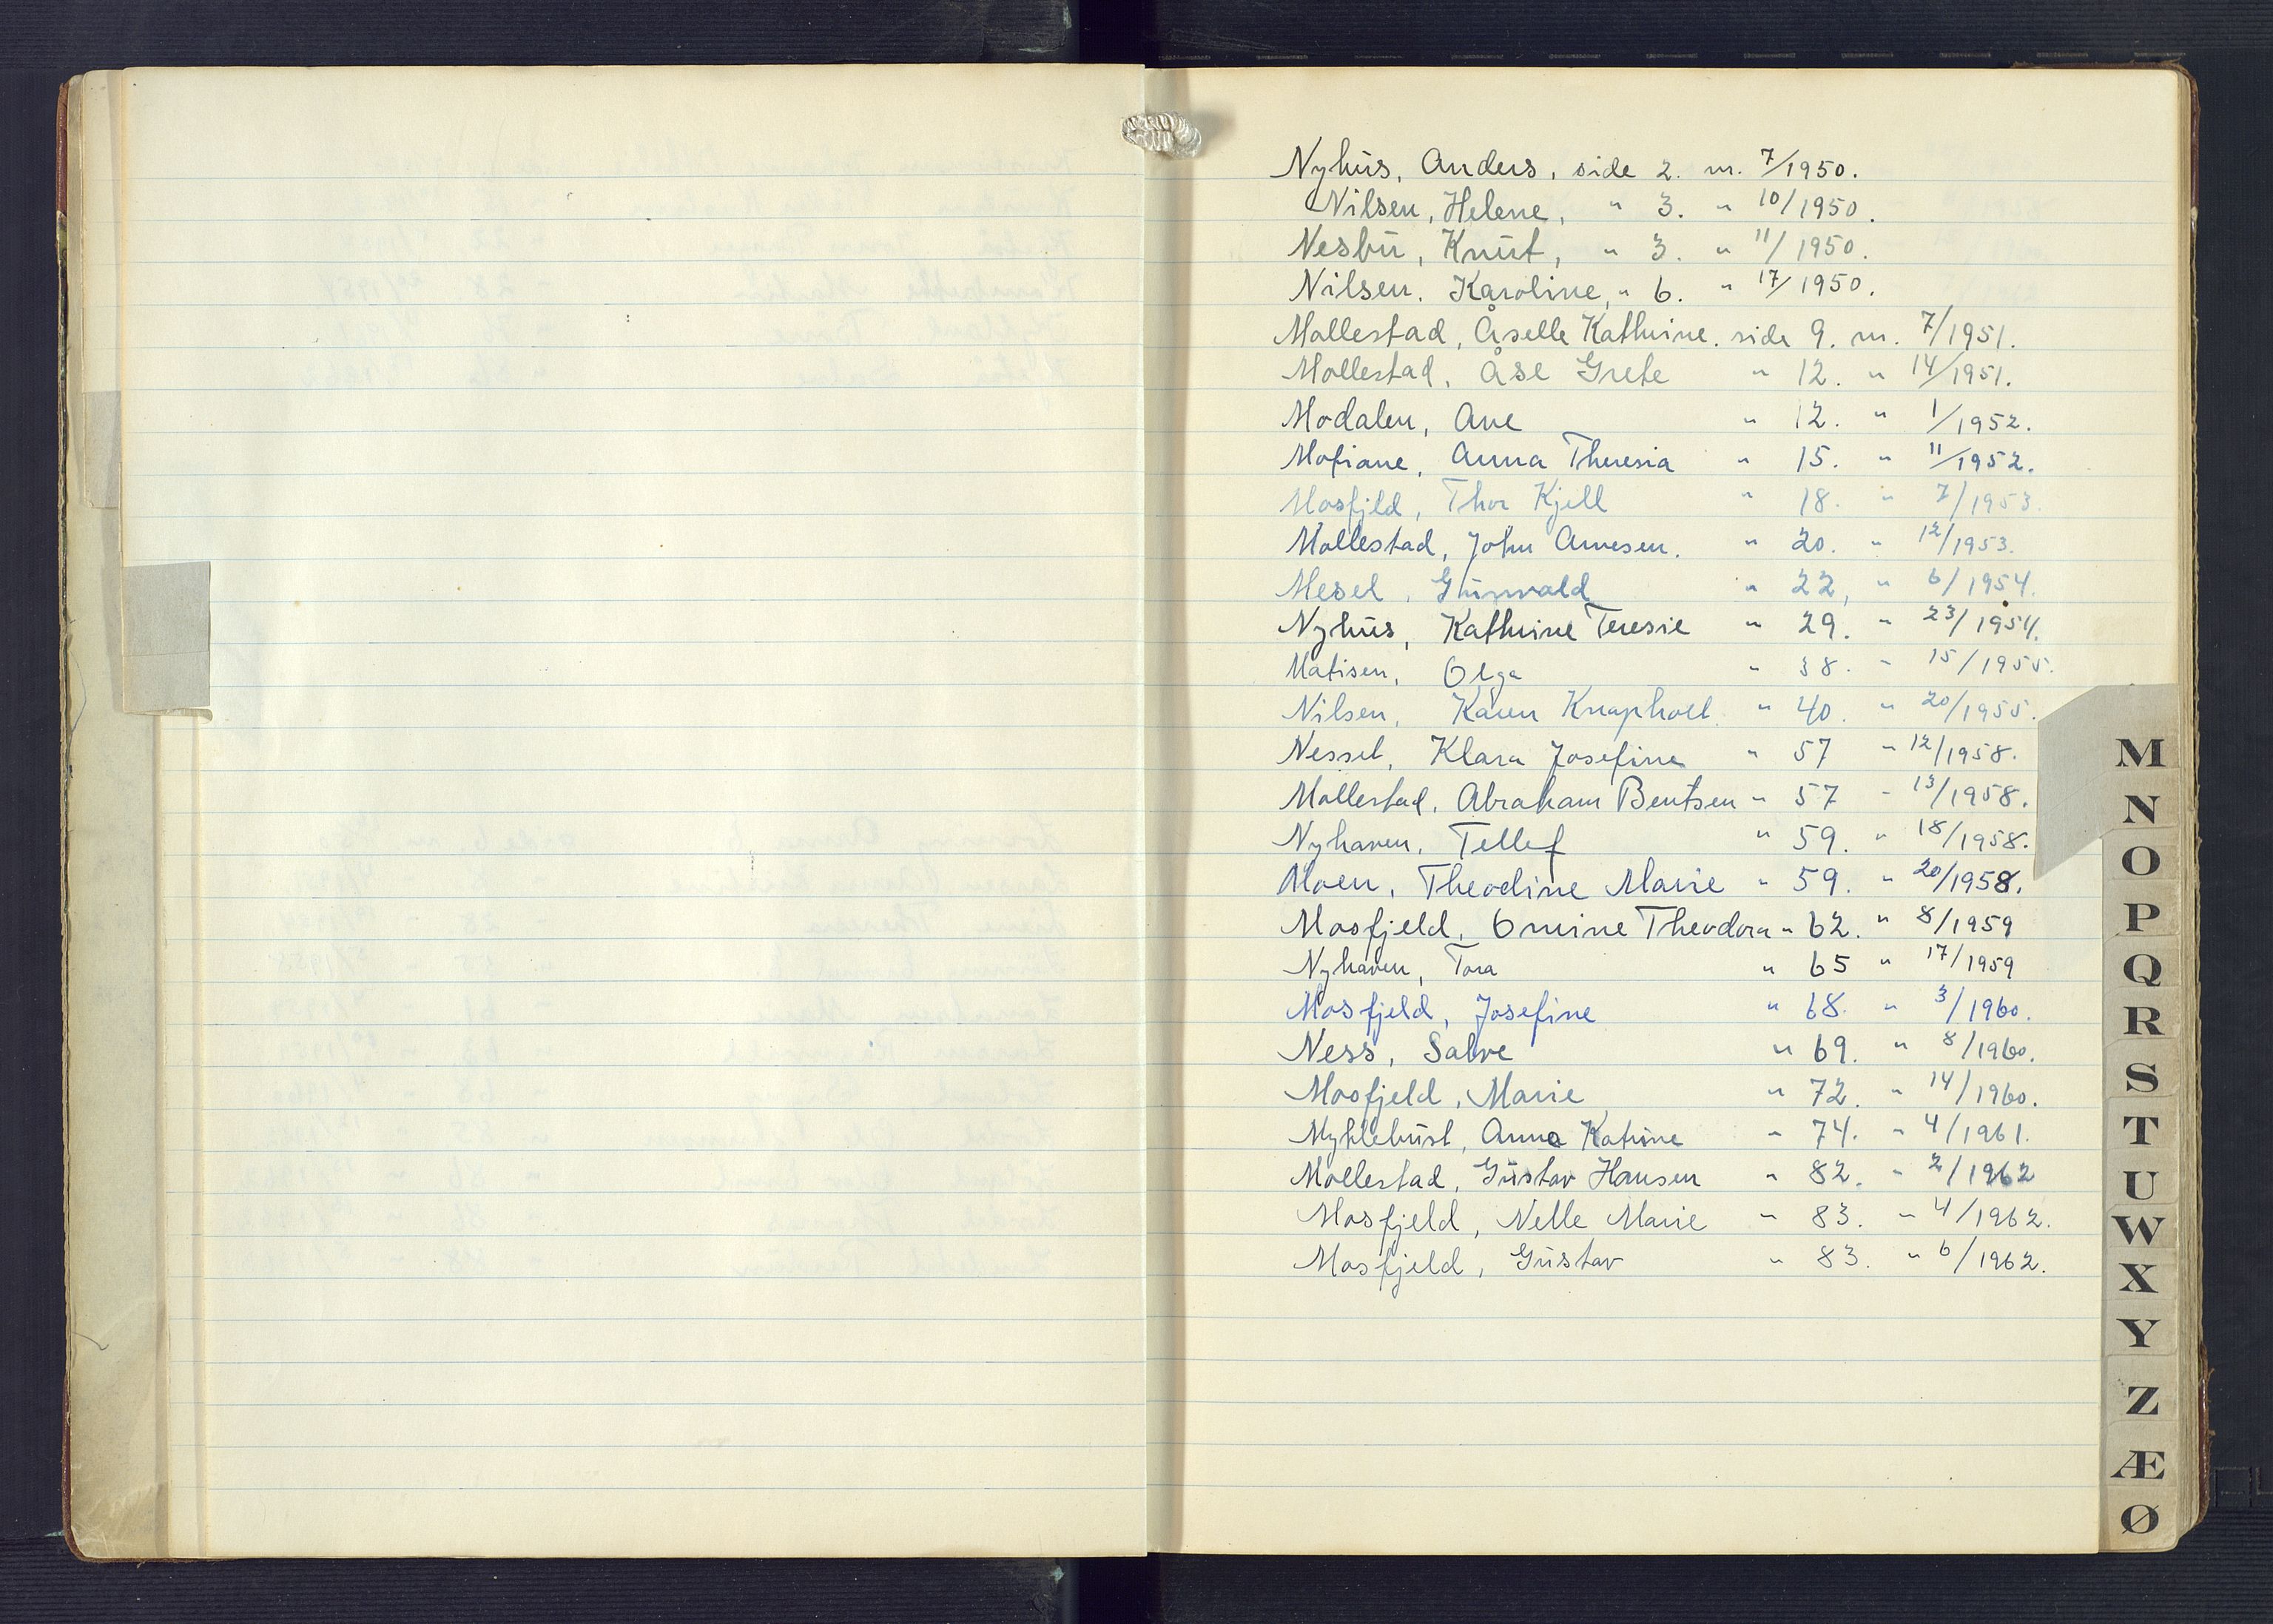 Nyhus, Anders, side 2. nr. 7/1950.
Nilsen, Helene, " 3. " 10/1950.
Nesbu, Knut, " 3. " 11/1950.
Nilsen, Karoline, " 6. " 17/1950.
Mollestad, Åselle Kathrine. side 9. nr. 7/1951.
Mollestad, Åse Grete " 12. " 14/1951.
Modalen, Ane " 12. " 1/1952.
Mofiane, Anna Theresia " 15. " 11/1952.
Mosfjeld, Thor Kjell " 18. " 7/1953.
Mollestad, John Arnesen. " 20. " 12/1953.
Mesel, Gunvald " 22, " 6/1954.
Nyhus, Kathrine Teresie " 29. " 23/1954.
Matisen, Olga " 38. " 15/1955.
Nilsen, Karen Knaphoel. " 40. " 20/1955.
Nesset, Klara Josefine " 57 " 12/1958.
Mollestad, Abraham Bentsen " 57 " 13/1958.
Nyhaven, Tellef " 59. " 18/1958.
Moen, Theodine Marie " 59. " 20/1958.
Mosfjeld, Omine Theodora " 62. " 8/1959
Nyhaven, Tora " 65 " 17/1959
Mosfjeld, Josefine " 68. " 3/1960.
Ness, Salve " 69. " 8/1960.
Mosfjeld, Marie " 72. " 14/1960.
Myklebust, Anna Katrine " 74. " 4/1961.
Mollestad, Gustav Hansen " 82. " 2/1962
Mosfjeld, Nelle Marie " 83. " 4/1962.
Mosfjeld, Gustav " 83. " 6/1962.
M
N
O
P
Q
R
S
T
U
W
X
Y
Z
Æ
Ø